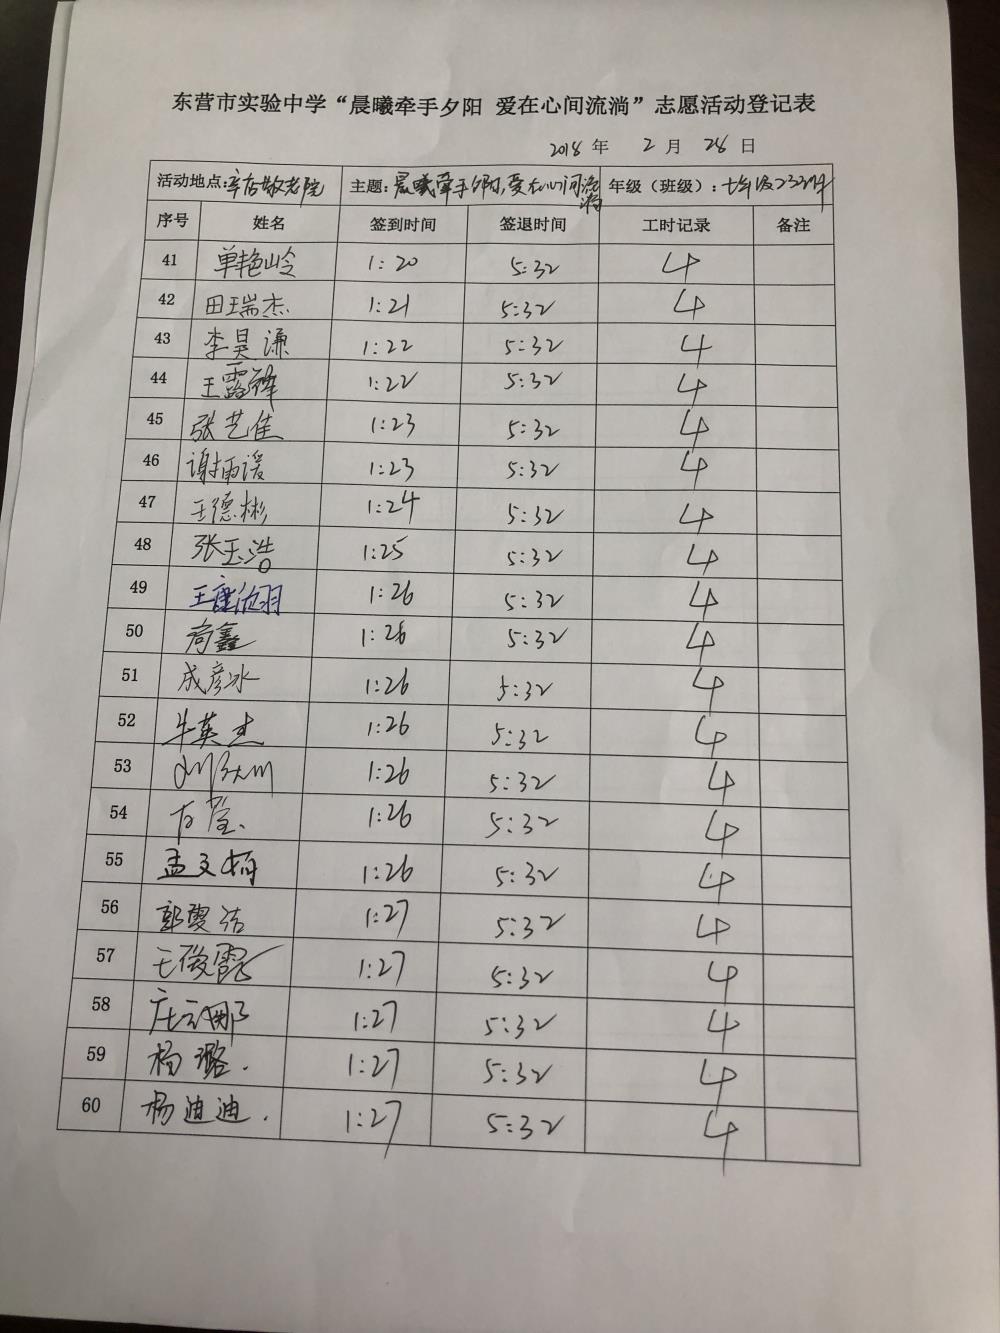 东营市实验中学“晨曦牵手夕阳 爱在心间流淌”志愿活动登记表
2018 年 2 月 28 日
活动地点:辛店敬老院 主题:晨曦牵手夕阳,爱在心间流淌 年级(班级):七年级
序号 姓名 签到时间 签退时间 工时记录 备注
41 单艳岭 1:20 5:32 4
42 田瑞杰 1:21 5:32 4
43 李昊谦 1:22 5:32 4
44 王露锋 1:22 5:32 4
45 张艺佳 1:23 5:32 4
46 谢雨谖 1:23 5:32 4
47 王德彬 1:24 5:32 4
48 张玉浩 1:25 5:32 4
49 1:26 5:32 4
50 1:26 5:32 4
51 成彦冰 1:26 5:32 4
52 牛英杰 1:26 5:32 4
53 1:26 5:32 4
54 1:26 5:32 4
55 孟文 1:26 5:32 4
56 郭雯洁 1:27 5:32 4
57 王俊霞 1:27 5:32 4
58 庄云娜 1:27 5:32 4
59 杨璐 1:27 5:32 4
60 杨迪迪 1:27 5:32 4